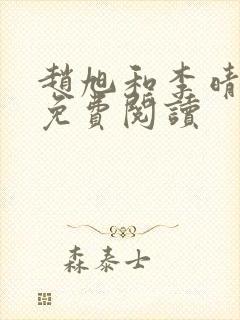 趙旭和李晴
免費閱讀
森泰士